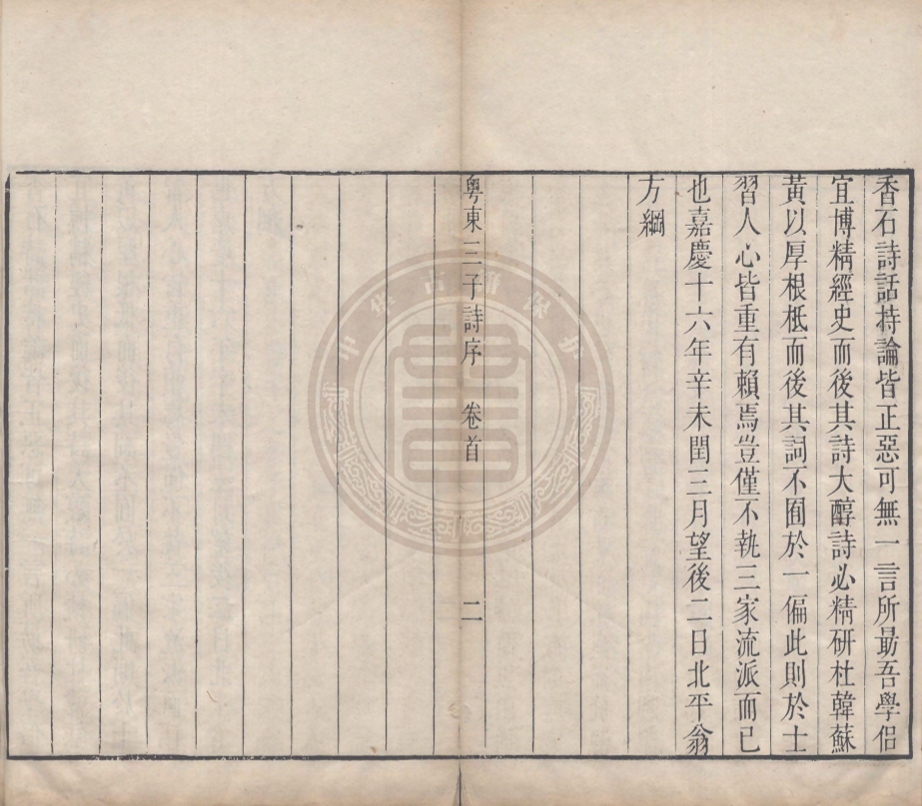 香石詩話持論皆正惡可無一言所最吾學侶
宜博精經史而後其詩大醇詩必精研杜韓蘇
黃以厚根柢而後其詞不囿於一偏此則於士
習人心皆重有賴焉豈僅不執三家流派而已
也嘉慶十六年辛未閏三月望後二日北平翁
方綱
粵東三子詩序 卷首 二